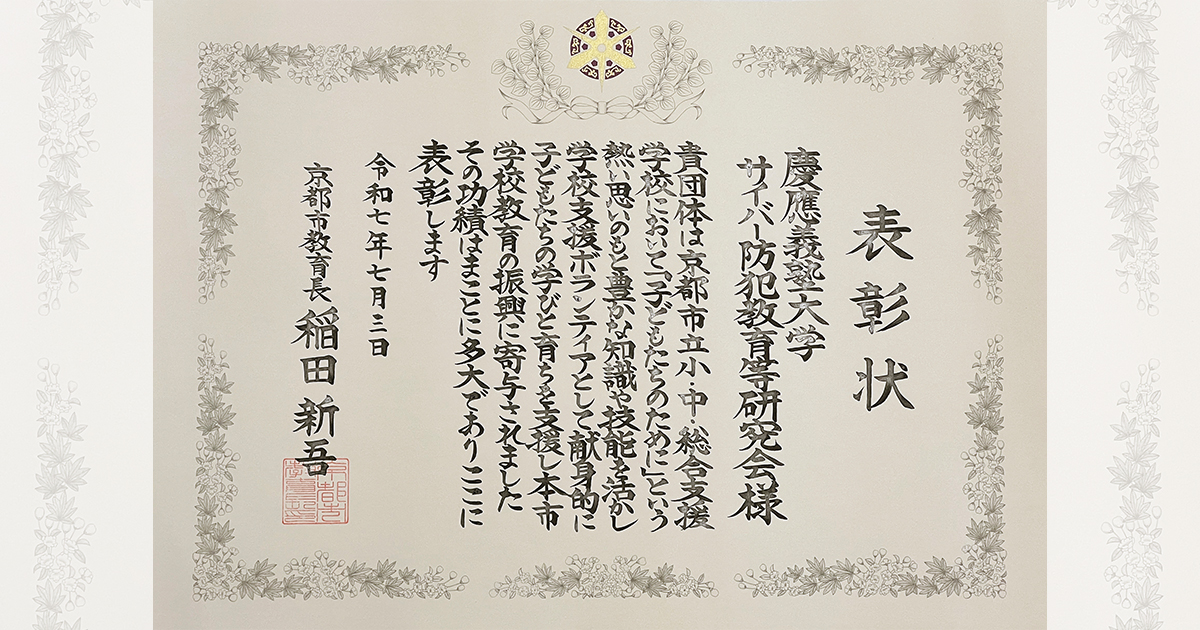 表彰状
慶應義塾大学
サイバー防犯教育等研究会様
貴団体は京都市立小・中・総合支援
学校において「子どもたちのために」という
熱い思いのもと豊かな知識や技能を活かし
学校支援ボランティアとして献身的に
子どもたちの学びと育ちを支援し本市
学校教育の振興に寄与されました
その功績はまことに多大でありここに
表彰します
令和七年七月三日
京都市教育長 稲田新吾